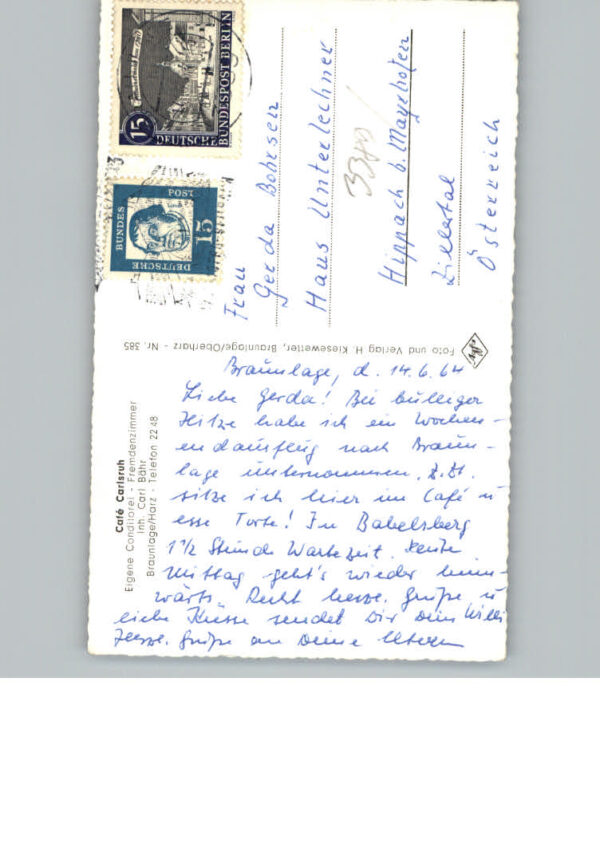 Café Carlsruh
Eigene Conditorei - Fremdenzimmer
Inh. Carl Bähr
Braunlage/Harz - Telefon 22 48
Braunlage, d. 14.6.64
Liebe Gerda! Bei bulliger
Hitze habe ich ein Wochen-
endausflug nach Braun-
lage unternommen. Z. Zt.
sitze ich hier im Café u
esse Torte! In Babelsberg
1 1/2 Stunde Wartezeit. Heute
Mittag geht's wieder heim-
wärts. Recht herzl. Grüße u
liebe Küsse sendet Dir Dein Willi
Herzl. Grüße an Deine Eltern
Foto und Verlag H. Kiesewetter, Braunlage/Oberharz - Nr. 385
Frau
Gerda Bohrsen
Haus Unterlechner
Hippach b. Mayrhofen
Zillertal
Österreich
15
DEUTSCHE
BUNDESPOST BERLIN
DEUTSCHE
BUNDES
POST
15